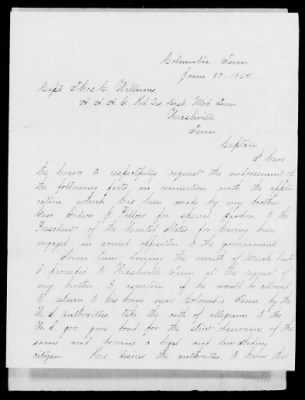 Columbia, Tenn
June 12, 1865
Capt. Thos C. Williams,
A. A. A. G. Hd. Qrs. Dist. Mid Tenn
Nashville
Tenn.
Captain
I have
the honor to respectfully request the endorsement of
the following facts, in connection with the appli-
cation which has been made by my brother
Genl Gideon J. Pillow for special pardon, to the
President of the United States for having been
engaged in armed opposition to the government
Some time during the month of March last
I proceeded to Nashville Tenn at the request of
my brother to ascertain if he would be allowed
to return to his home near Columbia Tenn, by the
U. S. authorities take the oath of allegiance to the
U. S. gov. give bond for the strict observance of the
same and become a loyal and law abiding
citizen. He desired the authorities to know that